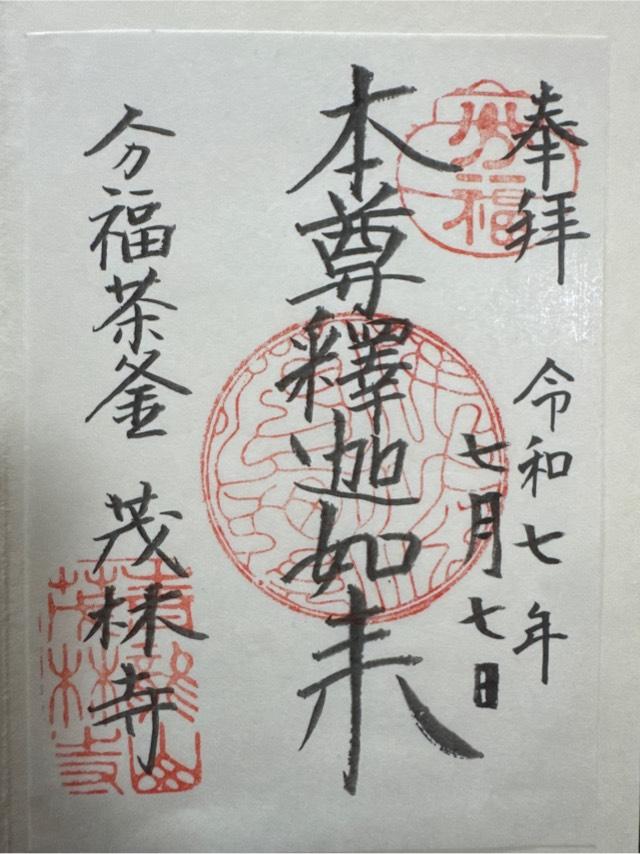 奉拝
令和七年
七月七日
本尊釋迦如来
分福茶釜 茂林寺
分福
青龍山
茂林寺